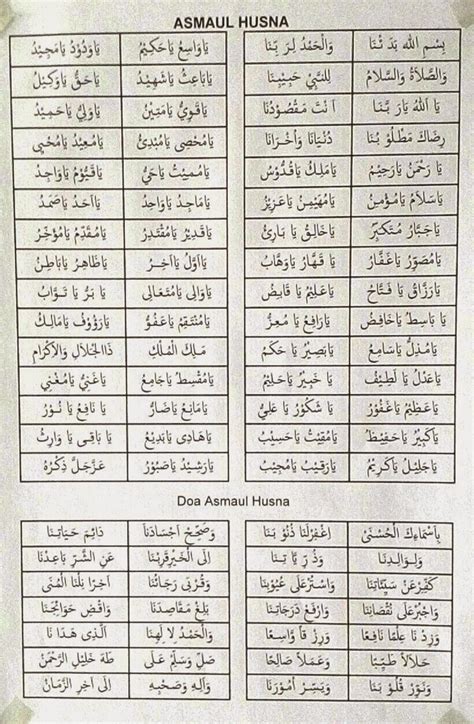 ASMAUL HUSNA
بِسْمِ اللّٰهِ بَدَ ئْنَا وَالْحَمْدُ لِرَ بِّنَا
وَالصَّلَاةُ وَالسَّلَامُ لِلنَّبِيِّ حَبِيْبِنَا
يَا اَللّٰهُ يَارَ بَّنَا اَنْتَ مَقْصُوْدُنَا
رِضَاكَ مَطْلُوْ بُنَا دُنْيَانَا وَأُخْرَانَا
يَا رَحْمٰنُ يَارَحِيْمُ يَامَلِكُ يَاقُدُّوْسُ
يَاسَلَامُ يَامُؤْمِنُ يَامُهَيْمِنُ يَاعَزِيْزُ
يَاجَبَّارُ مُتَكَبِّرُ يَاخَالِقُ يَا بَارِئُ
يَامُصَوِّرُ يَاغَفَّارُ يَا قَهَّارُ يَاوَهَّابُ
يَارَزَّاقُ يَا فَتَّاحُ يَاعَلِيْمُ يَا قَابِضُ
يَا بَاسِطُ يَاخَافِضُ يَارَافِعُ يَا مُعِزُّ
يَامُذِلُّ يَاسَامِعُ يَابَصِيْرُ يَا حَكَمُ
يَاعَدْلُ يَا لَطِيْفُ يَا خَبِيْرُ يَاحَلِيْمُ
يَاعَظِيْمُ يَاغَفُوْرُ يَا شَكُوْرُ يَا عَلِيُّ
يَاكَبِيْرُ يَاحَفِيْظُ يَامُقِيْتُ يَاحَسِيْبُ
يَاجَلِيْلُ يَاكَرِيْمُ يَارَقِيْبُ يَامُجِيْبُ
يَاوَاسِعُ يَاحَكِيْمُ يَاوَدُوْدُ يَامَجِيْدُ
يَابَاعِثُ يَاشَهِيْدُ يَاحَقُّ يَاوَكِيْلُ
يَاقَوِيُّ يَامَتِيْنُ يَاوَلِيُّ يَاحَمِيْدُ
يَامُحْصِى يَامُبْدِئُ يَامُعِيْدُ يَامُحْيِى
يَامُمِيْتُ يَاحَيُّ يَاقَيُّوْمُ يَاوَاجِدُ
يَامَاجِدُ يَاوَاحِدُ يَااَحَدُ يَاصَمَدُ
يَاقَدِيْرُ يَامُقْتَدِرُ يَامُقَدِّمُ يَامُؤَخِّرُ
يَااَوَّلُ يَااٰخِرُ يَاظَاهِرُ يَابَاطِنُ
يَاوَالِى يَامُتَعَالِى يَا بَرُّ يَا تَوَّابُ
يَامُنْتَقِمُ يَاعَفُوُّ يَارَؤُوْفُ يَامَالِكُ
مَلِكَ الْمُلْكِ ذَاالْجَلَالِ وَالْاِكْرَامِ
يَامُقْسِطُ يَاجَامِعُ يَاغَنِيُّ يَامُغْنِي
يَامَانِعُ يَاضَارُّ يَا نَافِعُ يَا نُوْرُ
يَاهَادِى يَابَدِيْعُ يَا بَاقِى يَا وَارِثُ
يَارَشِيْدُ يَاصَبُوْرُ عَزَّجَلَّ ذِكْرُهُ
Doa Asmaul Husna
بِاَسْمَاءِكَ الْحُسْنٰى اِغْفِرْلَنَا ذُنُوْ بَنَا
وَلِوَالِدِيْنَا وَذُ رِّ يَّا تِنَا
كَفِّرْعَنْ سَيِّئَاتِنَا وَاسْتُرْعَلٰى عُيُوْبِنَا
وَاجْبُرْعَلٰى نُقْصَانِنَا وَارْفَعْ دَرَجَاتِنَا
وَزِدْ نَا عِلْمًا نَافِعًا وَرِزْ قًا وَاسِعًا
حَلَالاً طَيِّبًا وَعَمَلاً صَالِحًا
وَنَوِّرْ قُلُوْ بَنَا وَيَسِّرْ اُمُوْرَنَا
وَصَحِّحْ اَجْسَادَنَا دَائِمَ حَيَاتِنَا
اِلَى الْخَيْرِقَرِّبْنَا عَنِ الشَّرِّ بَاعِدْنَا
وَقُرْبٰى رَجَائُنَا اٰخِرًا نِلْنَا الْمُنٰى
بَلِّغْ مَقَاصِدَنَا وَاقْضِ حَوَائِجَنَا
وَالْحَمْدُ لِا لٰهِنَا اَلَّذِى هَدَا نَا
صَلِّ وَسَلِّمْ عَلٰى طٰهَ خَلِيْلِ الرَّحْمٰنِ
وَاٰلِهِ وَصَحْبِهِ اِلَى اٰخِرِ الزَّمَانِ